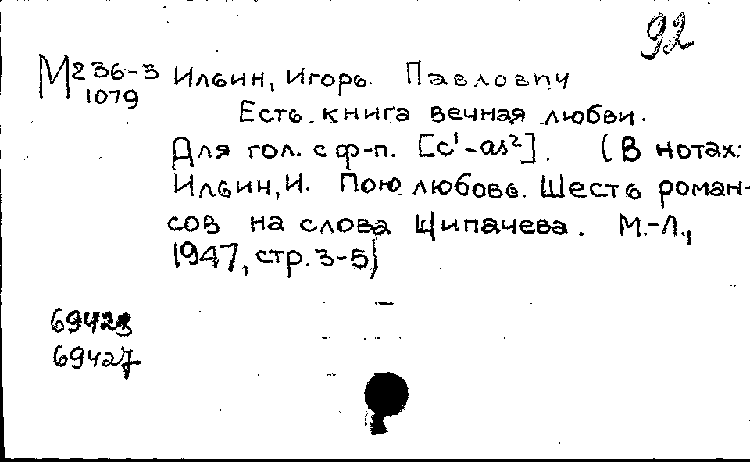 92
М 236-3 Ильин, Игорь Павлович
1079
Есть книга вечная любви.
Для гол. с ф-п. [c¹-as²]. (В нотах:
Ильин, И. Пою любовь. Шесть роман-
сов на слова Щипачева. М.-Л.,
1947, стр. 3-5)
69423
69427